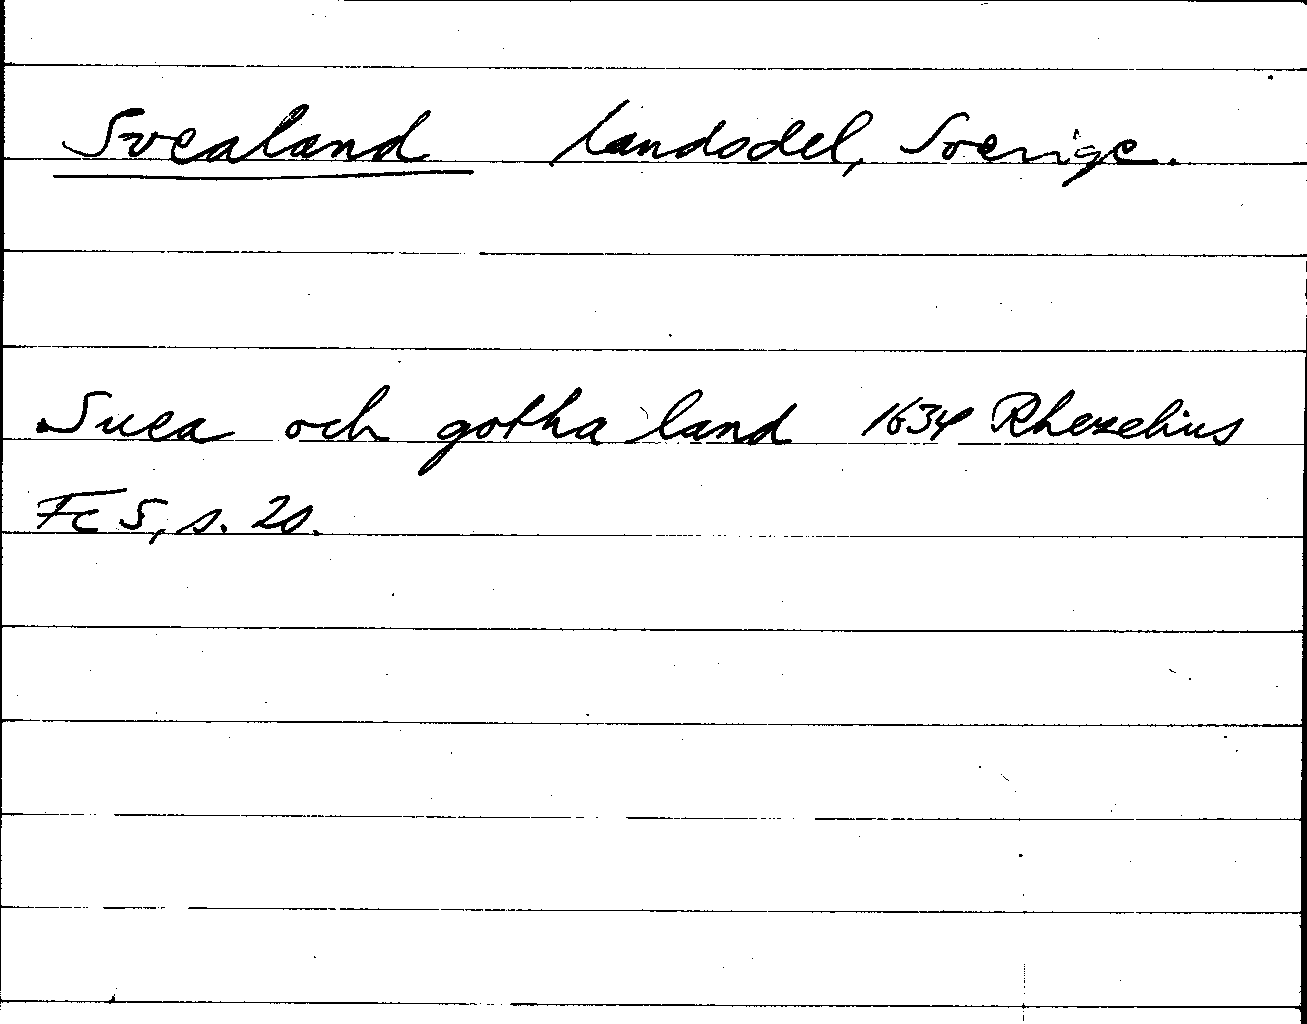 Svealand landsdel, Sverige.
Suea och gotha land 1634 Rhezelius
Fc 5, s. 20.